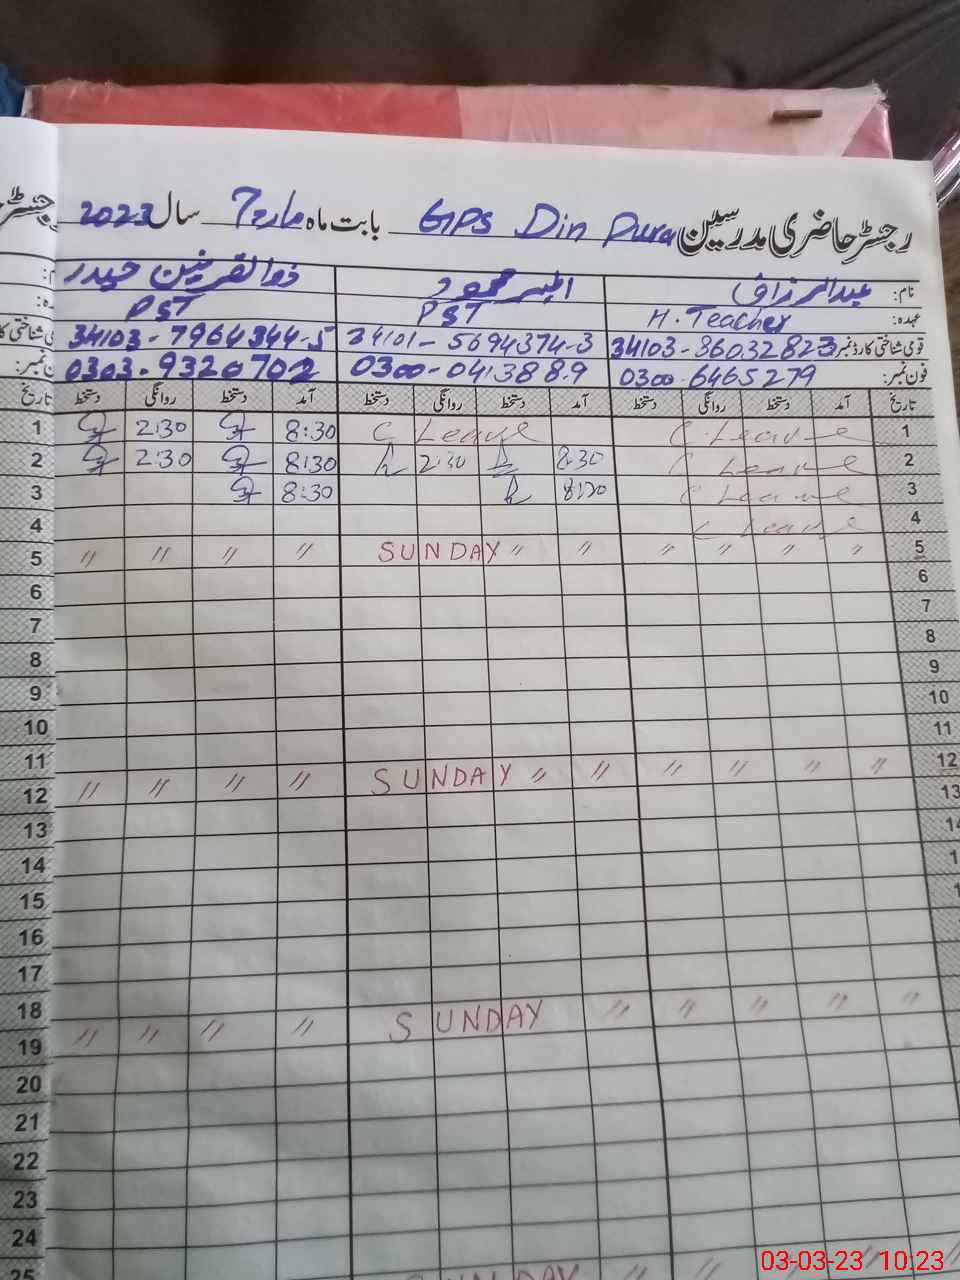 رجسٹر حاضری مدرسین GPS Din Pura بابت ماہ مارچ سال 2023
نام: عبدالرزاق محمود ذوالقرنین حیدر
عہدہ: H. Teacher PST PST
قومی شناختی کارڈ نمبر 34103-8603282-3 34101-5694374-3 34103-7964344-5
فون نمبر: 0300-6465279 0300-0413889 0303-9320702
تاریخ آمد دستخط روانگی دستخط آمد دستخط روانگی دستخط آمد دستخط روانگی دستخط تاریخ
1 C. Leave C Leave 8:30 2:30 1
2 C Leave 8:30 2:30 8:30 2:30 2
3 C Leave 8:30 3
4 C Leave 4
5 〃 〃 〃 〃 SUNDAY 〃 〃 〃 〃 〃 〃 5
6 6
7 7
8 8
9 9
10 10
11 11
12 〃 〃 〃 〃 SUNDAY 〃 〃 〃 〃 〃 〃 12
13 13
14 14
15
16
17
18
19 〃 〃 〃 〃 SUNDAY 〃 〃 〃 〃 〃
20
21
22
23
24
25
SUNDAY
03-03-23 10:23